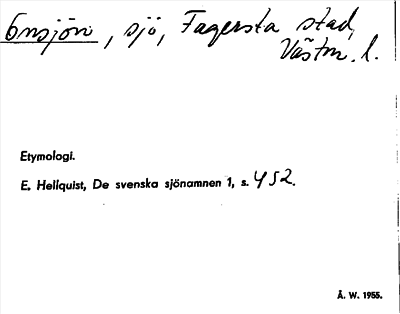 Önsjön, sjö, Fagersta stad,
Västm. l.
Etymologi.
E. Hellquist, De svenska sjönamnen 1, s. 452.
Å. W. 1955.